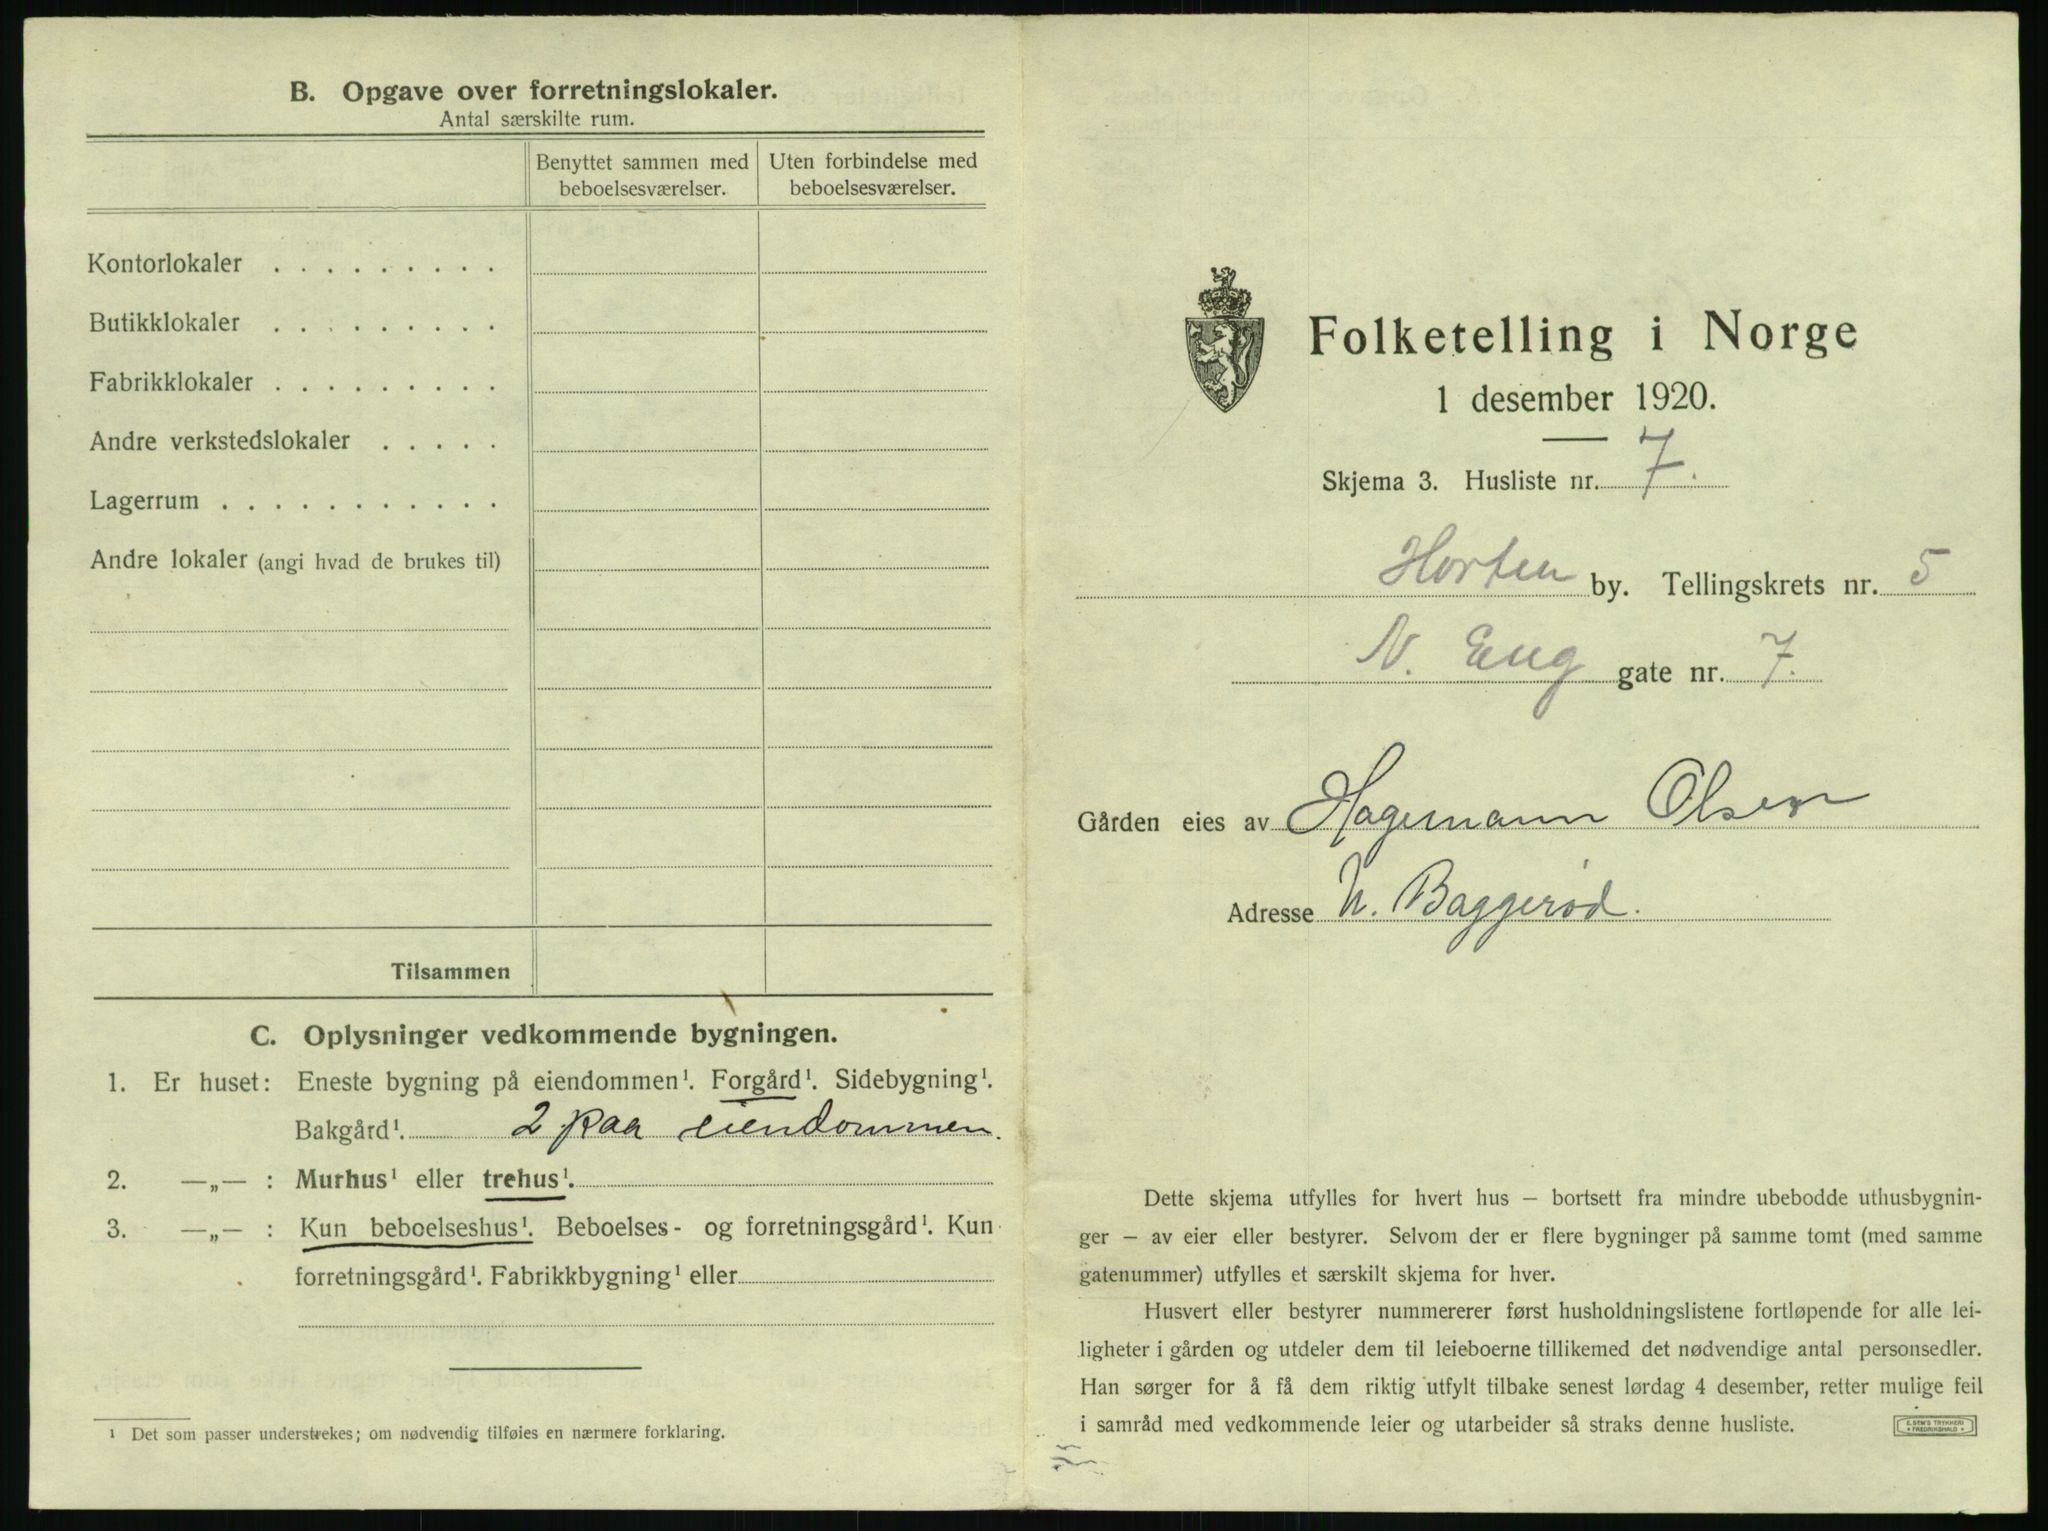 B. Opgave over forretningslokaler.
Antal særskilte rum.
Benyttet sammen med beboelsesværelser.
Uten forbindelse med beboelsesværelser.
Kontorlokaler . . . . . . . . .
Butikklokaler . . . . . . . . .
Fabrikklokaler . . . . . . . . .
Andre verkstedslokaler . . . . .
Lagerrum . . . . . . . . . . .
Andre lokaler (angi hvad de brukes til)
Tilsammen
C. Oplysninger vedkommende bygningen.
1. Er huset: Eneste bygning på eiendommen¹. Forgård¹. Sidebygning¹.
Bakgård¹. 2 paa eiendommen.
2. —„— : Murhus¹ eller trehus¹.
3. —„— : Kun beboelseshus¹. Beboelses- og forretningsgård¹. Kun
forretningsgård¹. Fabrikkbygning¹ eller
¹ Det som passer understrekes; om nødvendig tilføies en nærmere forklaring.
Folketelling i Norge
1 desember 1920.
Skjema 3. Husliste nr. 7.
Horten by. Tellingskrets nr. 5
N. Eng gate nr. 7.
Gården eies av Hagemann Olsen
Adresse N. Baggerød.
Dette skjema utfylles for hvert hus – bortsett fra mindre ubebodde uthusbygnin-
ger – av eier eller bestyrer. Selvom der er flere bygninger på samme tomt (med samme
gatenummer) utfylles et særskilt skjema for hver.
Husvert eller bestyrer nummererer først husholdningslistene fortløpende for alle lei-
ligheter i gården og utdeler dem til leieboerne tillikemed det nødvendige antal personsedler.
Han sørger for å få dem riktig utfylt tilbake senest lørdag 4 desember, retter mulige feil
i samråd med vedkommende leier og utarbeider så straks denne husliste.
E. SEM'S TRYKKERI
• FREDRIKSHALD •